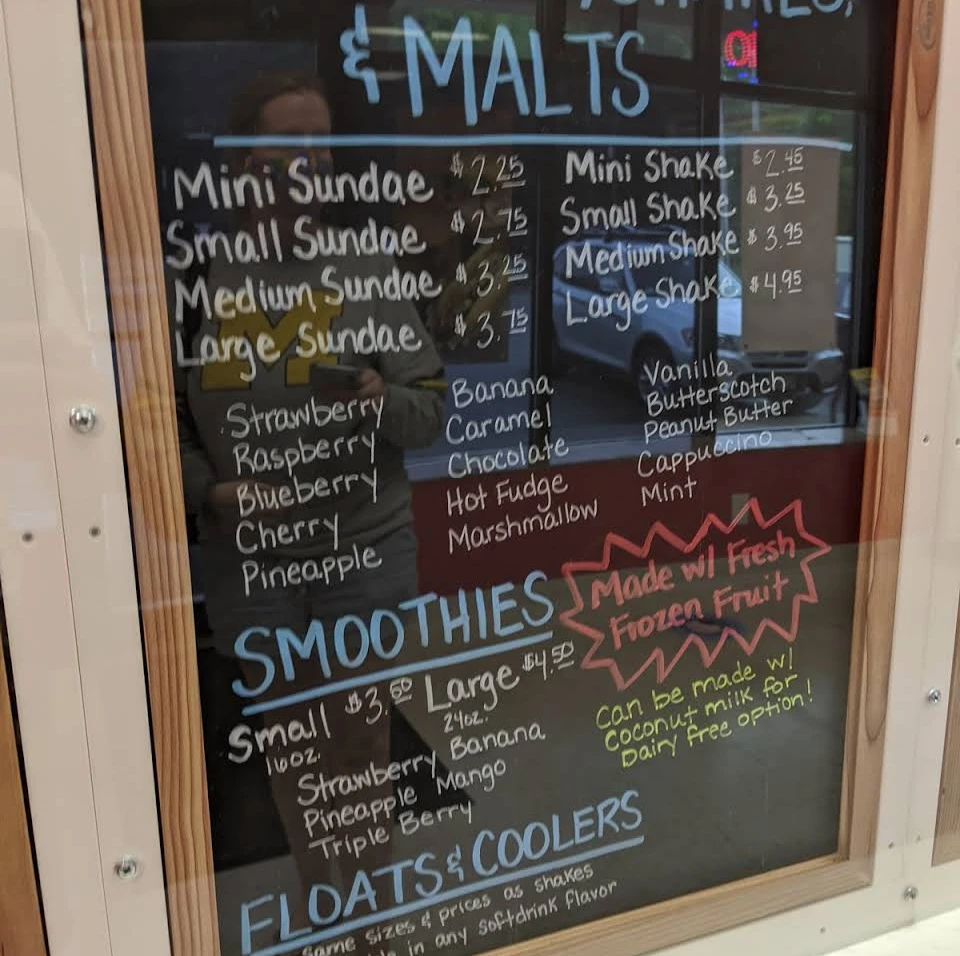 & MALTS
Mini Sundae $2.25
Small Sundae $2.75
Medium Sundae $3.25
Large Sundae $3.75
Mini Shake $2.45
Small Shake $3.25
Medium Shake $3.95
Large Shake $4.95
Strawberry
Raspberry
Blueberry
Cherry
Pineapple
Banana
Caramel
Chocolate
Hot Fudge
Marshmallow
Vanilla
Butterscotch
Peanut Butter
Cappuccino
Mint
SMOOTHIES
Made w/ Fresh
Frozen Fruit
Small $3.50 Large $4.50
16oz. 24oz.
Strawberry Banana
Pineapple Mango
Triple Berry
Can be made w/
Coconut milk for
Dairy free option!
FLOATS & COOLERS
Same sizes & prices as shakes
in any softdrink flavor
M